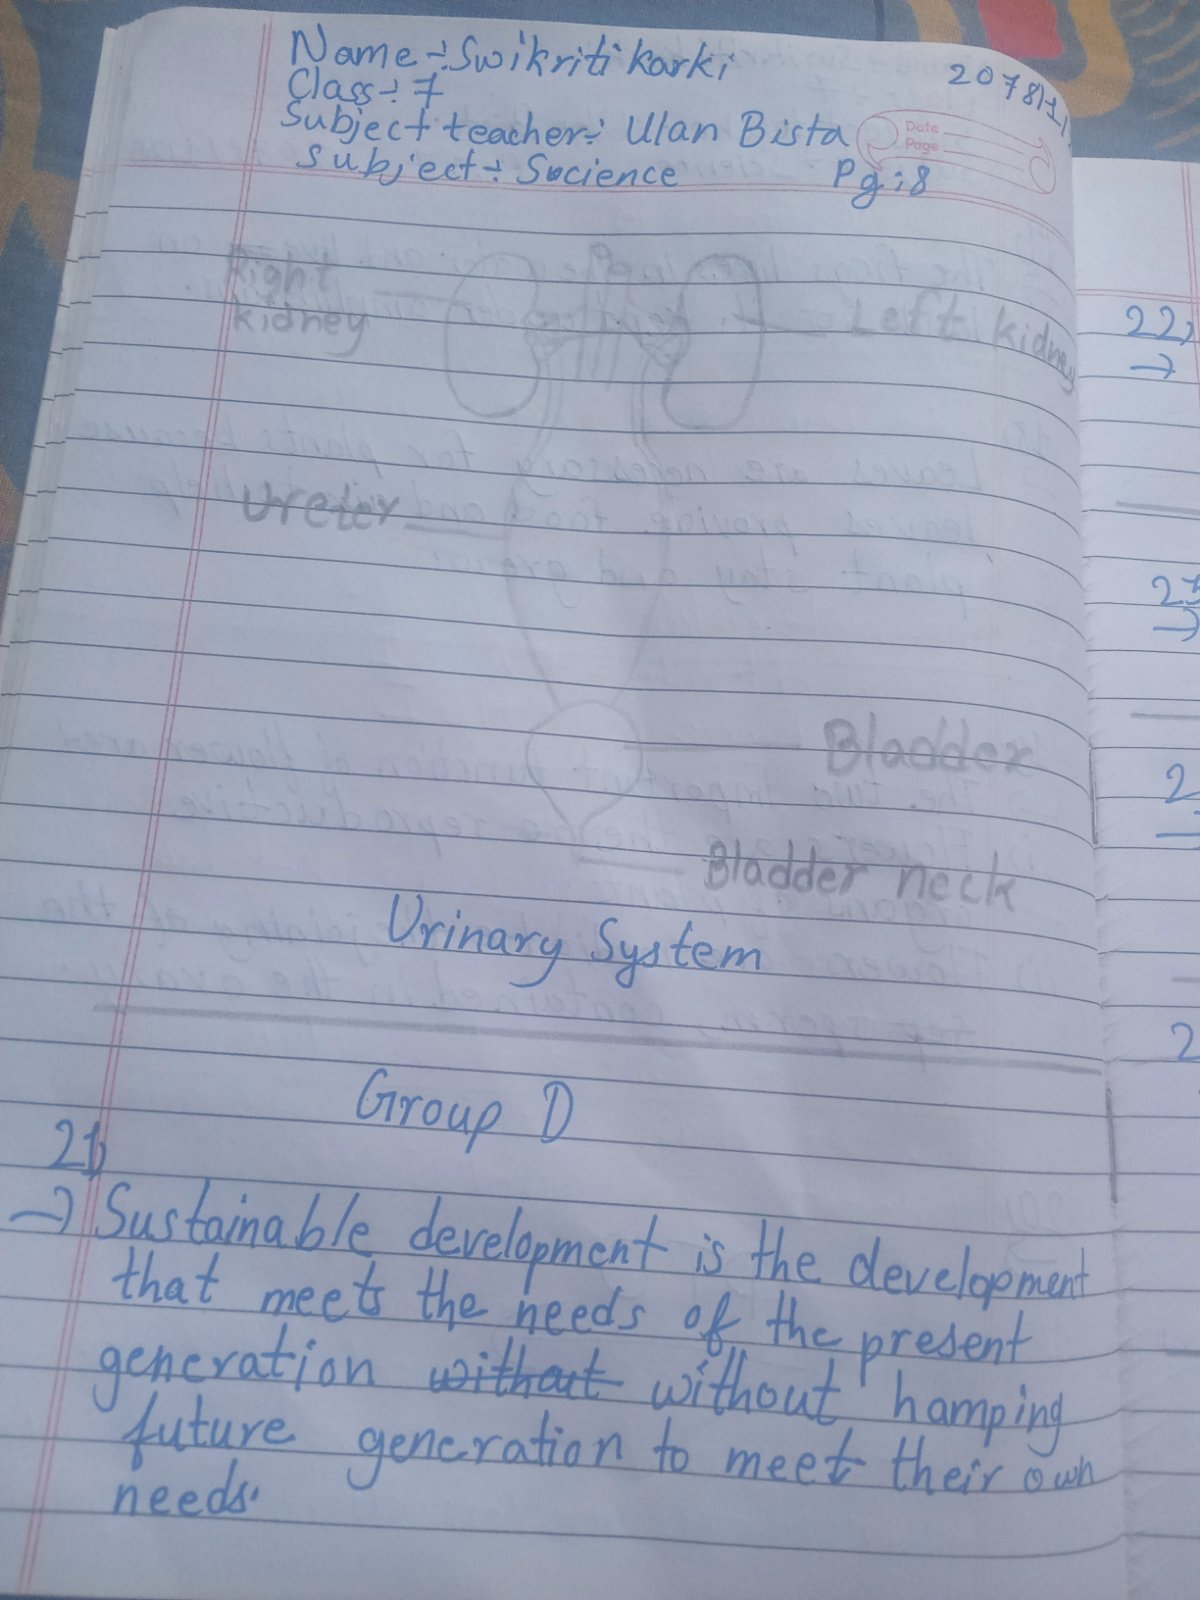 Name :- Swikriti karki
2078/1/
Class :- 7
Subject teacher :- Ulan Bista
Date
Page
Subject :- Sucience
Pg : 8
Right
kidney
Left kidney
Ureter
Bladder
Bladder neck
Urinary System
Group D
21)
→ Sustainable development is the development
that meets the needs of the present
generation without without hamping
future generation to meet their own
needs.
22)
→
2
2